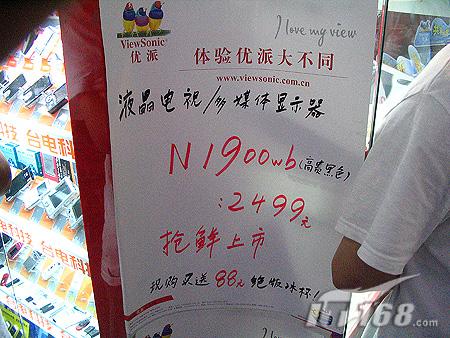 ViewSonic
优派
I love my view
体验优派大不同
www.viewsonic.com.cn
液晶电视/多媒体显示器
N1900wb(高贵黑色)
:2499元
抢鲜上市
现购买送88元绝版冰杯!
台电科
ViewSonic
I love
IT168.com